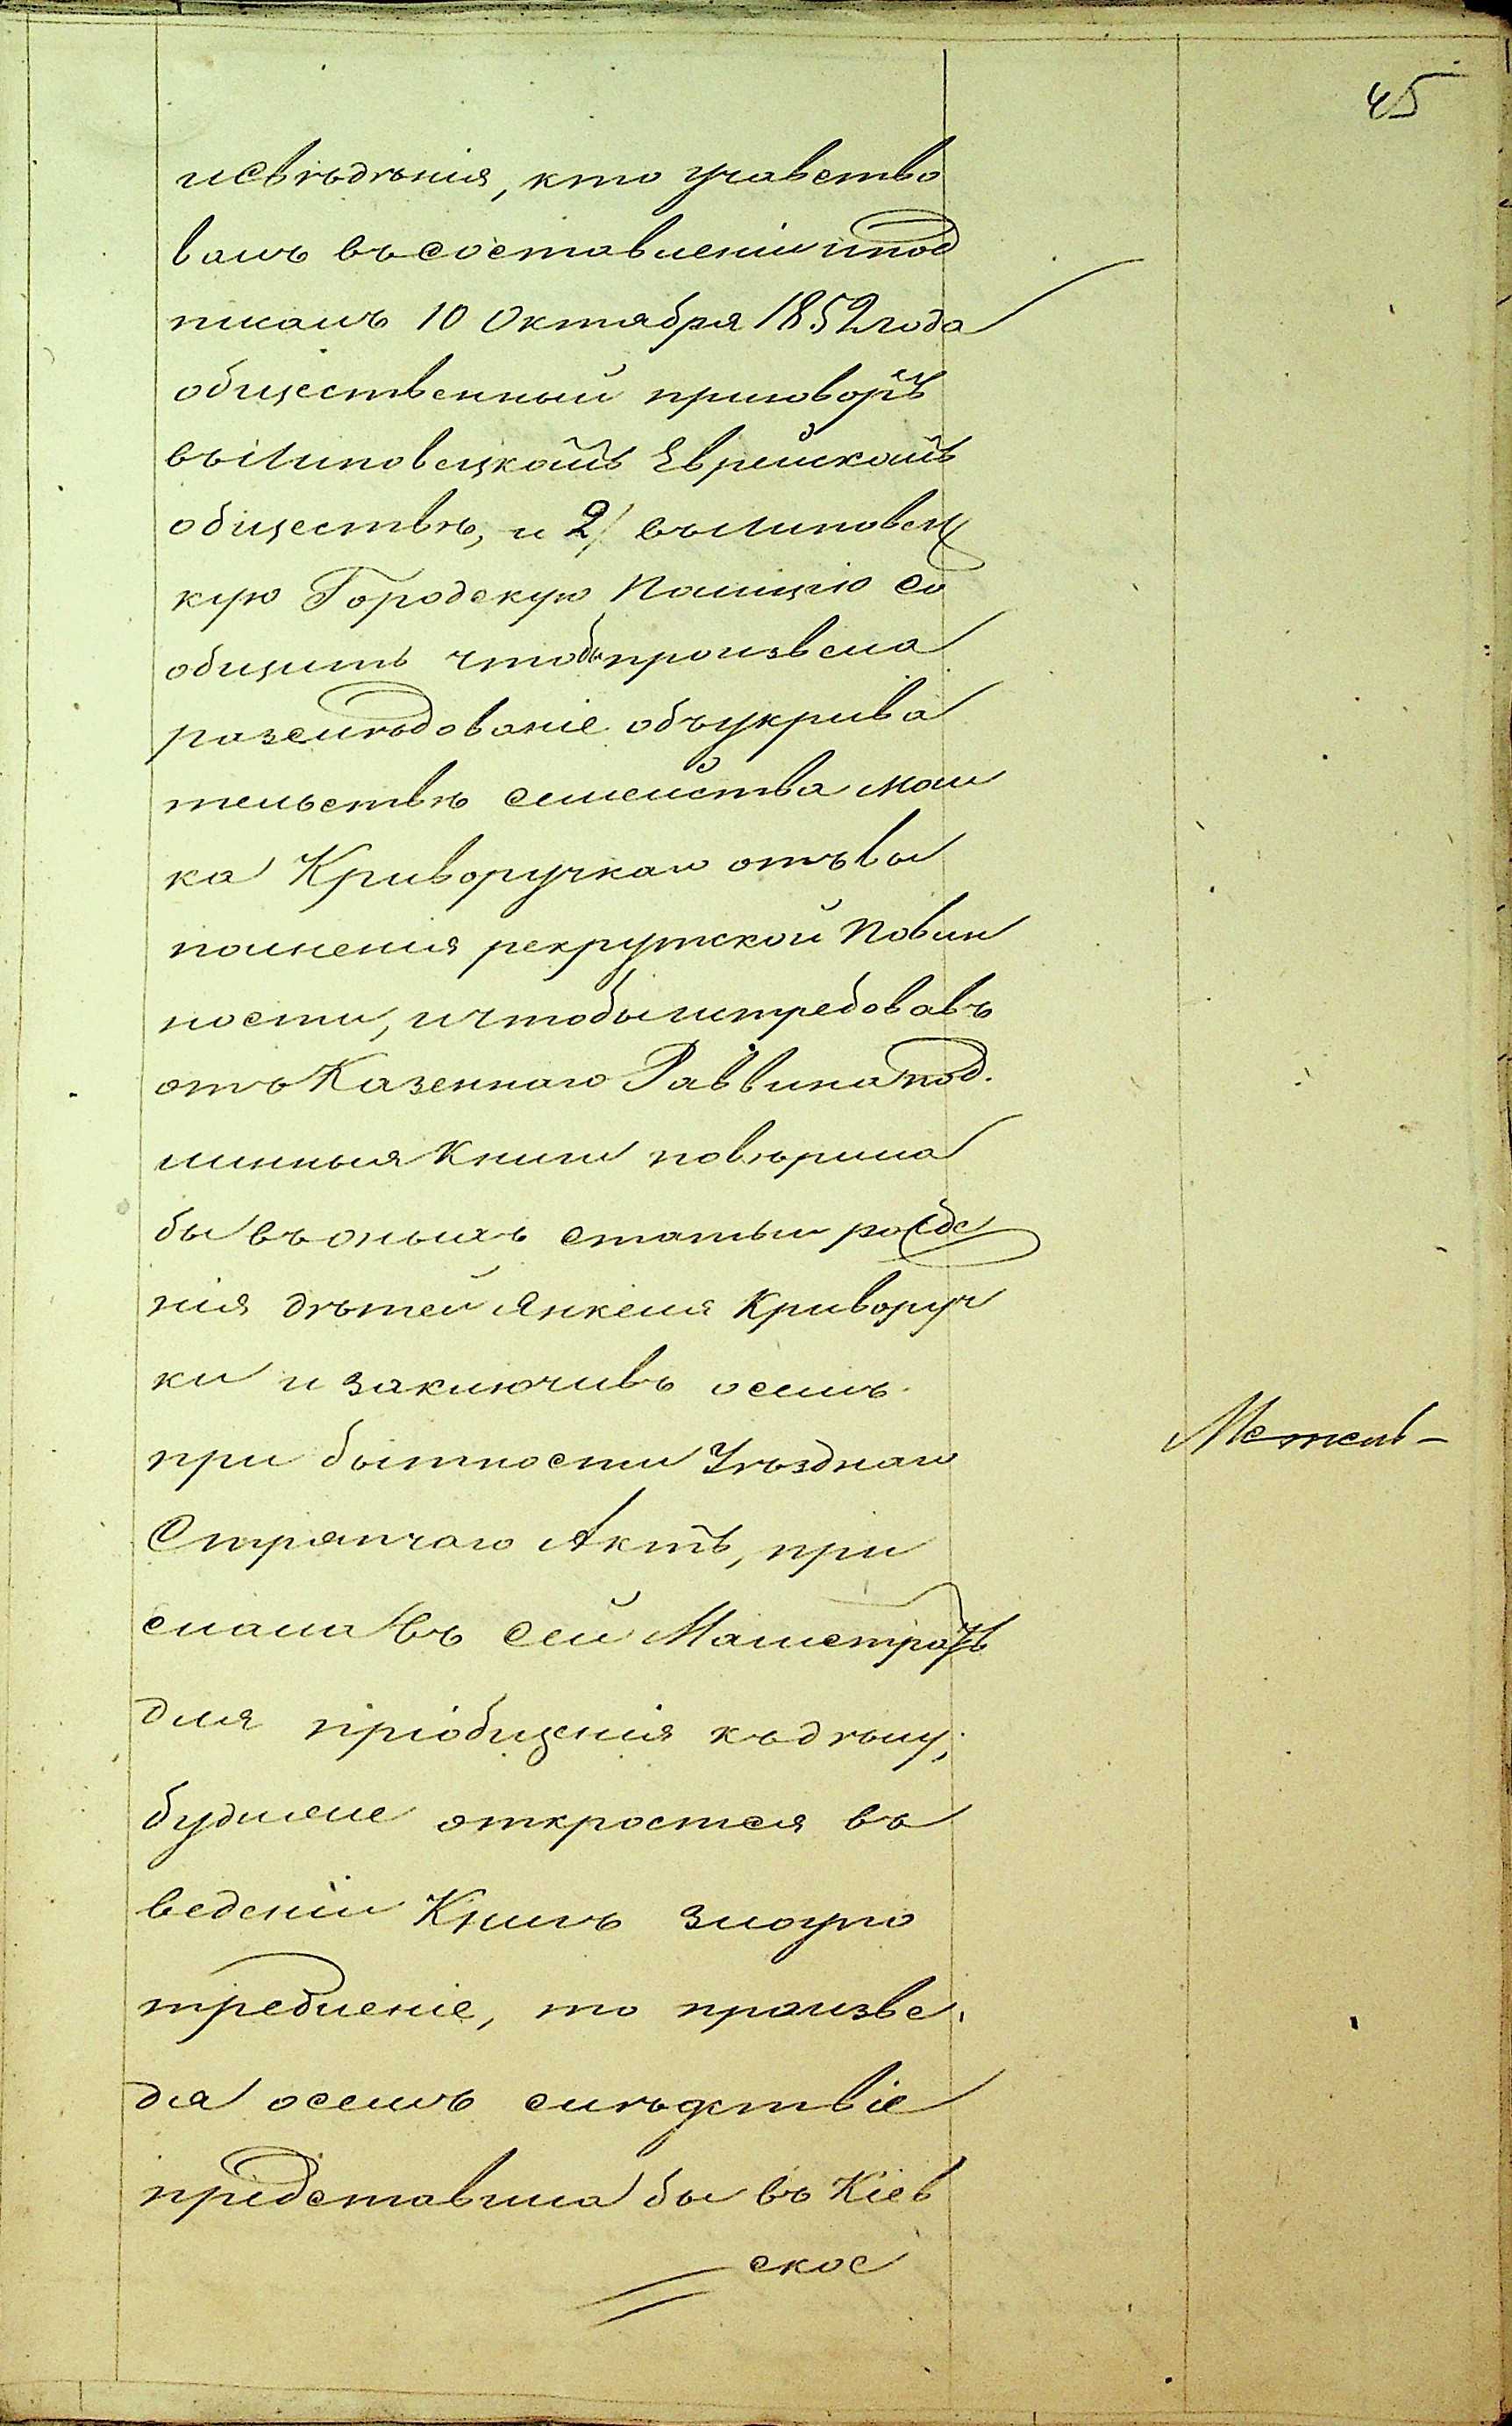 45
и свѣдѣнія, кто учавство
валъ въ составленіи и под
писалъ 10 Октября 1852 года
общественный приговоръ
въ Липовецкомъ Еврейскомъ
обществѣ, и 2/ въ Липовец
кую Городскую Полицію со
общить чтобы произвела
разслѣдованіе объ укрива
тельствѣ семейства Мош
ка Криворучкаго отъ вы
полненія рекрутской Повин
ности, и чтобы истребовавъ
отъ Казеннаго Раввина под
линныя Книги повѣрила
бы въ оныхъ статьи рожде
нія дѣтей Янкеля Криворуч
ки и заключивъ о семъ
при бытности Уѣзднаго
Стряпчаго Актъ, при
слали въ сей Магистратъ
для пріобщенія къ дѣлу;
буди же откроется въ
веденіи Книгъ злоупо
требленіе, то произве
дя о семъ слѣдствіе
представила бы въ Кіев
ское